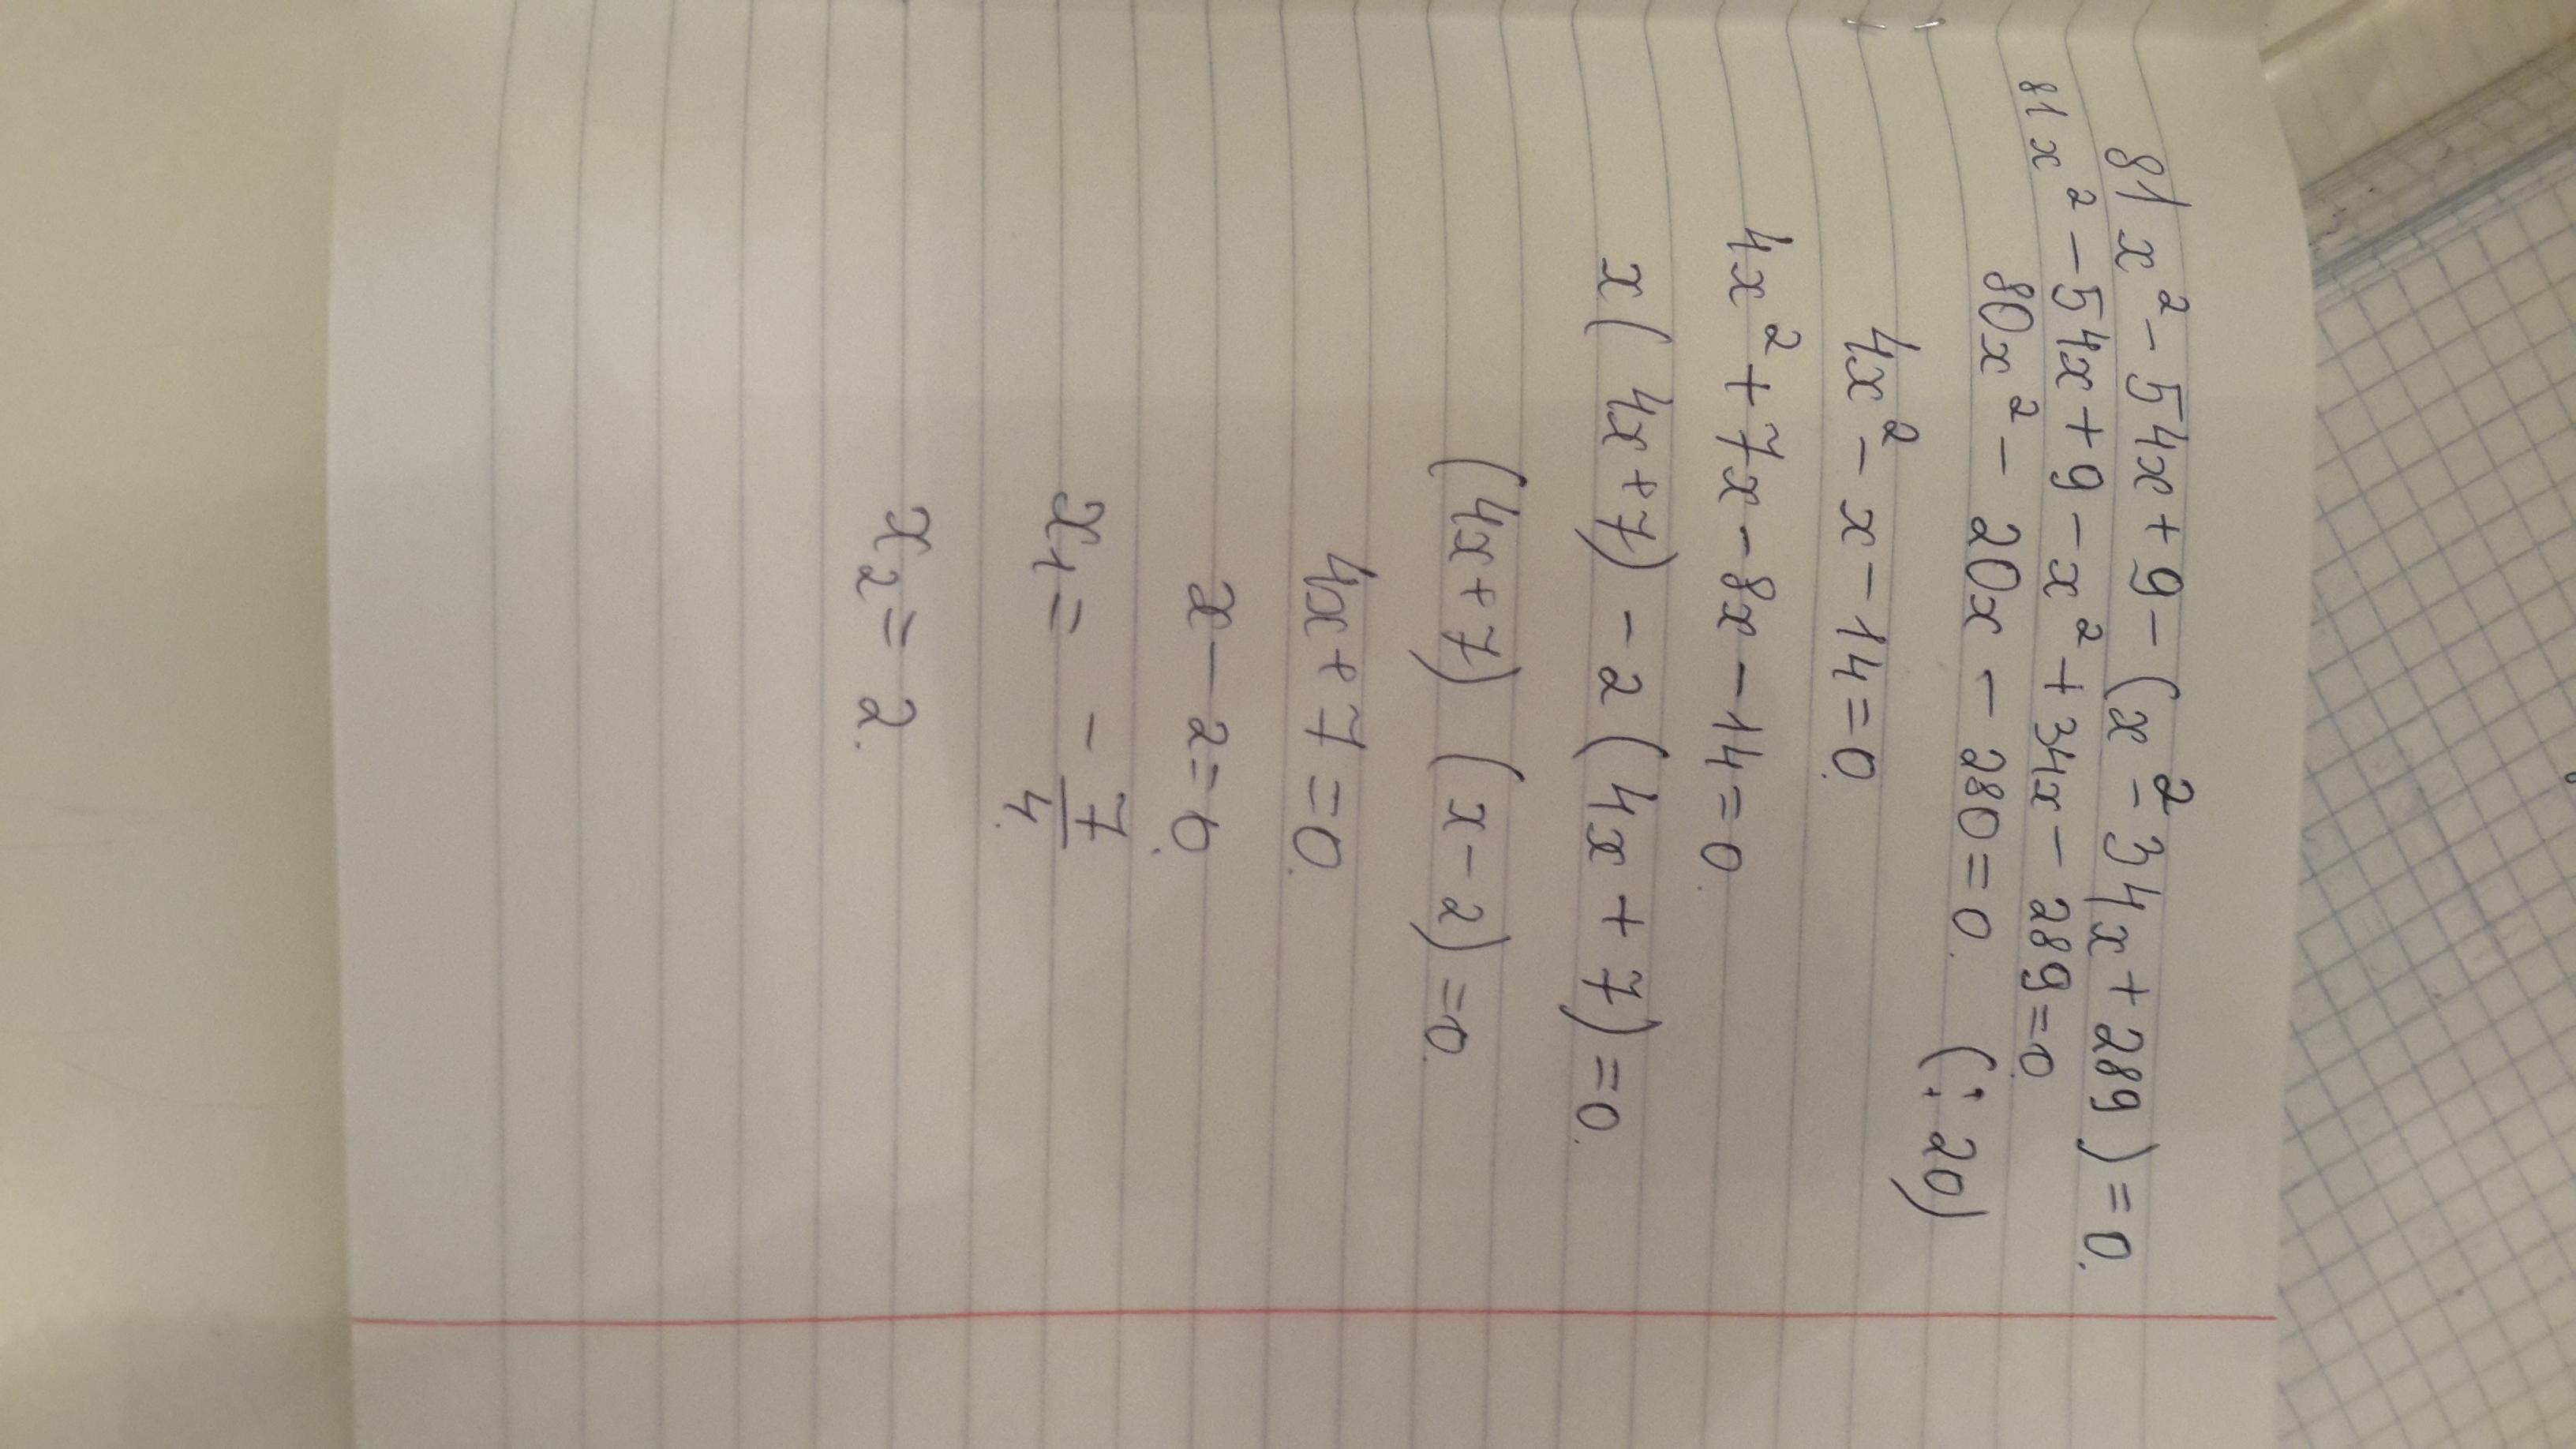 81x² - 54x + 9 - (x² - 34x + 289) = 0.
81x² - 54x + 9 - x² + 34x - 289 = 0
80x² - 20x - 280 = 0. (: 20)
4x² - x - 14 = 0
4x² + 7x - 8x - 14 = 0.
x(4x+7) - 2(4x+7) = 0.
(4x+7) (x-2) = 0.
4x + 7 = 0.
x - 2 = 0.
x₁ = - 7/4.
x₂ = 2.